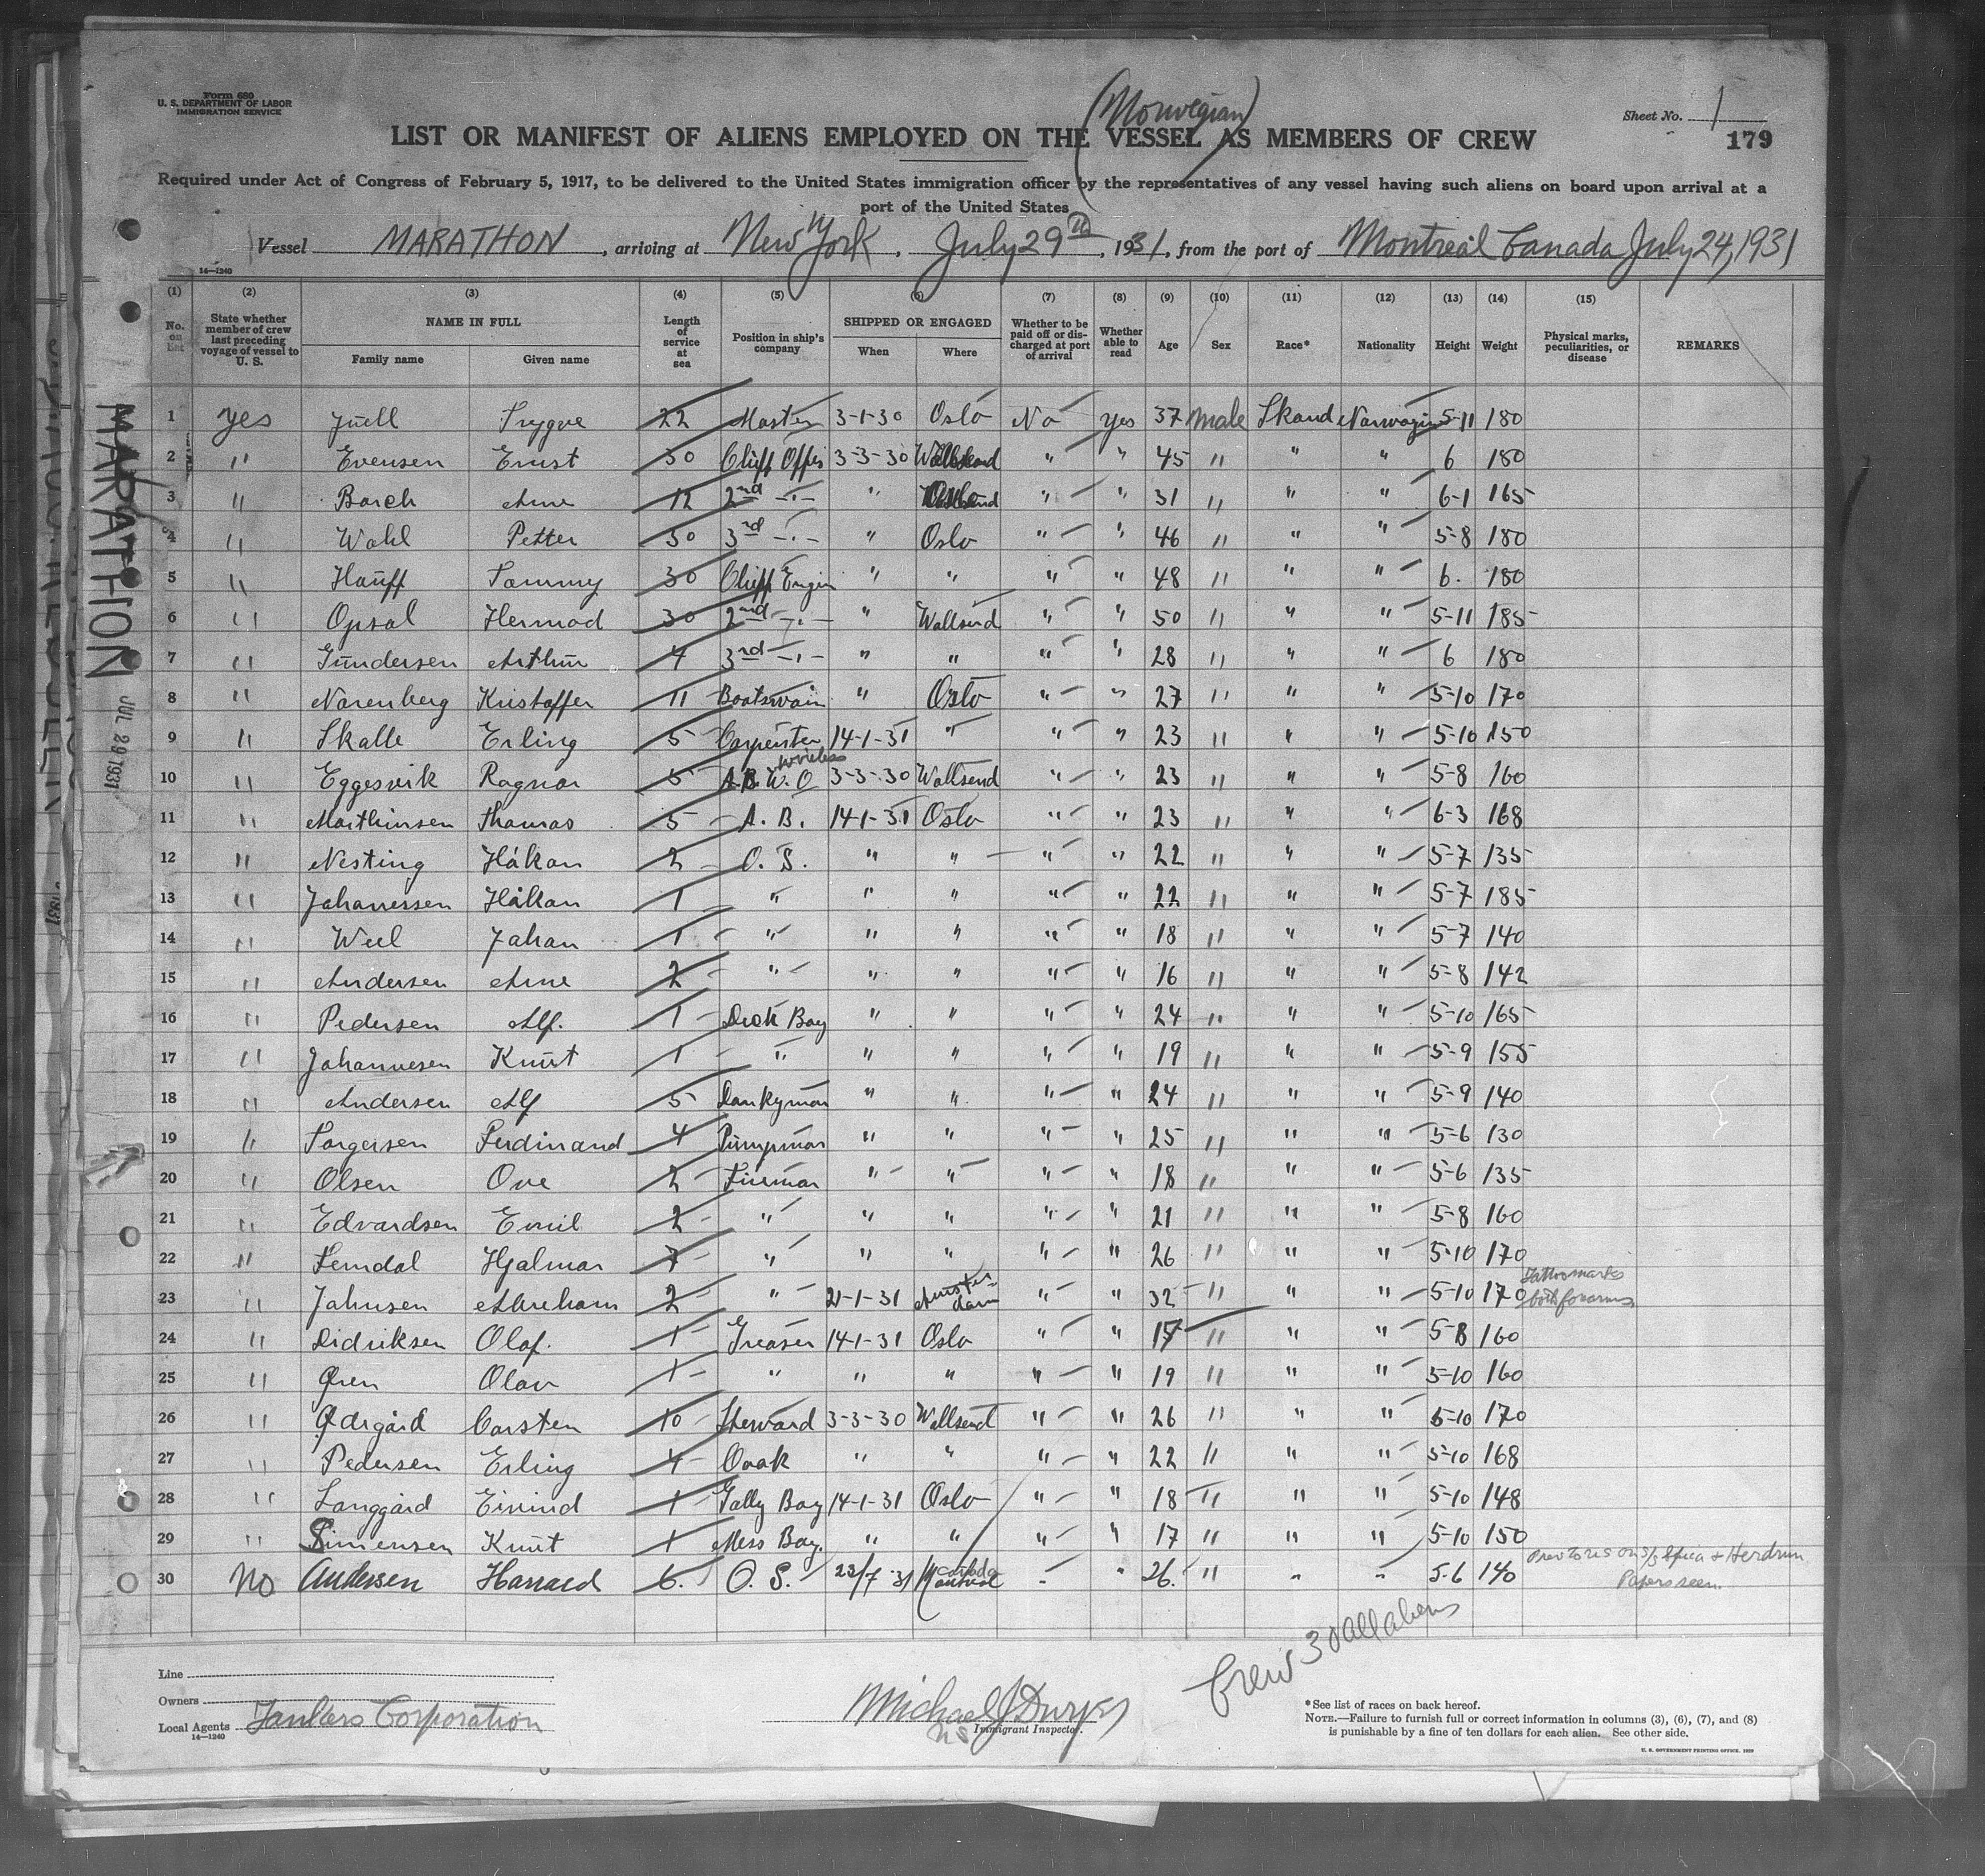 Form 680
U. S. DEPARTMENT OF LABOR
IMMIGRATION SERVICE
(Norwegian)
Sheet No. 1
LIST OR MANIFEST OF ALIENS EMPLOYED ON THE VESSEL AS MEMBERS OF CREW
179
Required under Act of Congress of February 5, 1917, to be delivered to the United States immigration officer by the representatives of any vessel having such aliens on board upon arrival at a
port of the United States
Vessel MARATHON, arriving at New York, July 29th, 1931, from the port of Montreal Canada July 24, 1931
14—1240
(1) (2) (3) (4) (5) (6) (7) (8) (9) (10) (11) (12) (13) (14) (15)
No. on list State whether member of crew last preceding voyage of vessel to U. S. NAME IN FULL Family name Given name Length of service at sea Position in ship's company SHIPPED OR ENGAGED When Where Whether to be paid off or discharged at port of arrival Whether able to read Age Sex Race* Nationality Height Weight Physical marks, peculiarities, or disease REMARKS
1 yes Juell Trygve 22 Master 3-1-30 Oslo No yes 37 male Skand Norwegin 5-11 180
2 " Evensen Ernst 30 Chieff Offis 3-3-30 " " 45 " " " 6 180
3 " Borch Arne 12 2nd -"- " " " 31 " " " 6-1 165
4 " Wahl Petter 30 3rd -"- " Oslo " " 46 " " " 5-8 180
5 " Hauff Tommy 30 Chieff Engin " " " " 48 " " " 6. 180
6 " Opsal Hermod 30 2nd -"- " Wallsend " " 50 " " " 5-11 185
7 " Gundersen Arthur 4 3rd -"- " " " " 28 " " " 6 180
8 " Narenberg Kristoffer 11 Boatswain " Oslo " " 27 " " " 5-10 170
9 " Skalle Erling 5 Carpenter 14-1-31 " " " 23 " " " 5-10 150
10 " Eggesvik Ragnar 5 wireless W.O 3-3-30 Wallsend " " 23 " " " 5-8 160
11 " Marthinsen Thomas 5 A. B. 14-1-31 Oslo " " 23 " " " 6-3 168
12 " Nesting Håkan 2 O. S. " " " " 22 " " " 5-7 135
13 " Johannessen Håkan 1 " " " " " 22 " " " 5-7 185
14 " Weel Johan 1 " " " " " 18 " " " 5-7 140
15 " Andersen Arne 2 " " " " " 16 " " " 5-8 142
16 " Pedersen Alf. 1 Deck Boy " " " " 24 " " " 5-10 165
17 " Johannesen Knut 1 " " " " " 19 " " " 5-9 155
18 " Andersen Alf 5 Donkyman " " " " 24 " " " 5-9 140
19 " Torgersen Ferdinand 4 Pumpman " " " " 25 " " " 5-6 130
20 " Olsen Ove 2 Fireman " " " " 18 " " " 5-6 135
21 " Edvardsen Emil 2 " " " " " 21 " " " 5-8 160
22 " Hjalmar 7 " " " " " 26 " " " 5-10 170
23 " Johnsen Abreham 2 " 21-1-31 Amsterdam " " 32 " " " 5-10 170 Tattoo marks both forearms
24 " Didriksen Olaf. 1 Greaser 14-1-31 Oslo " " 17 " " " 5-8 160
25 " Olav 1 " " " " " 19 " " " 5-10 160
26 " Ødegård Carsten 10 Steward 3-3-30 Wallsend " " 26 " " " 5-10 170
27 " Pedersen Erling 4 Cook " " " " 22 " " " 5-10 168
28 " Langgård Eivind 1 Gally Boy 14-1-31 Oslo " " 18 " " " 5-10 148
29 " Simensen Knut 1 Mess Boy. " " " " 17 " " " 5-10 150
30 No Andersen Harraed 6. O. S. 23/7-31 Montreal Canada - " 26. " " " 5-6 140 Prev to US on S/S Spica + Herdrun Papers seen.
Crew 30 all aliens
Line
Owners
Local Agents Tankers Corporation
14—1240
Michael J
Immigrant Inspector.
*See list of races on back hereof.
NOTE.—Failure to furnish full or correct information in columns (3), (6), (7), and (8)
is punishable by a fine of ten dollars for each alien. See other side.
U. S. GOVERNMENT PRINTING OFFICE. 1929
MARATHON JUL 29 1931